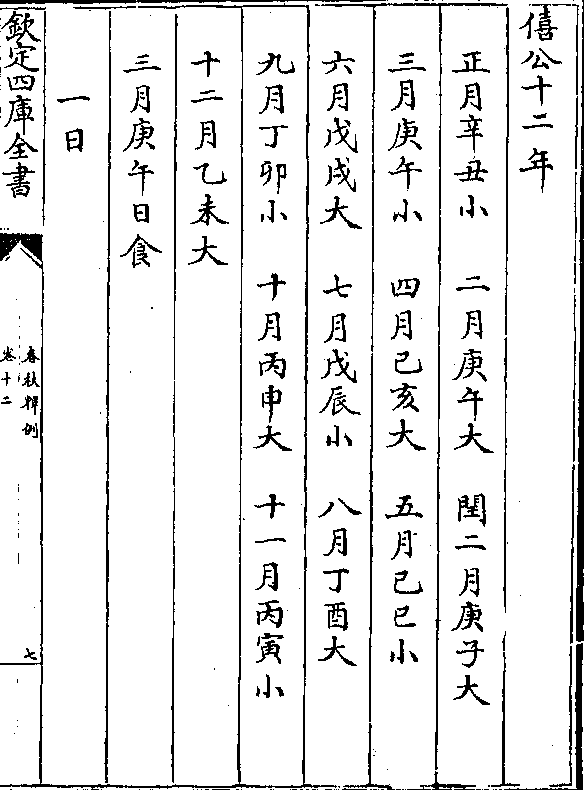 僖公十二年
正月辛丑小　二月庚午大　閏二月庚子大
三月庚午小　四月己亥大　五月己巳小
六月戊戌大　七月戊辰小　八月丁酉大
九月丁卯小　十月丙申大　十一月丙寅小
十二月乙未大
三月庚午日食
一日
欽定四庫全書
春秋釋例
卷十二
七